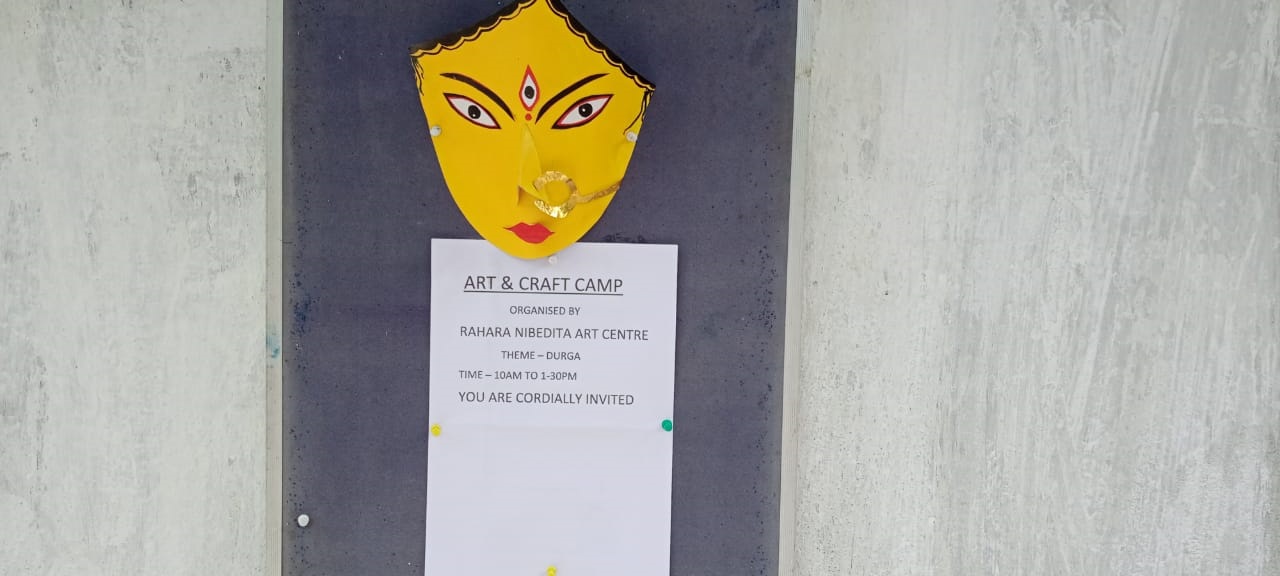 ART & CRAFT CAMP
ORGANISED BY
RAHARA NIBEDITA ART CENTRE
THEME – DURGA
TIME – 10AM TO 1-30PM
YOU ARE CORDIALLY INVITED